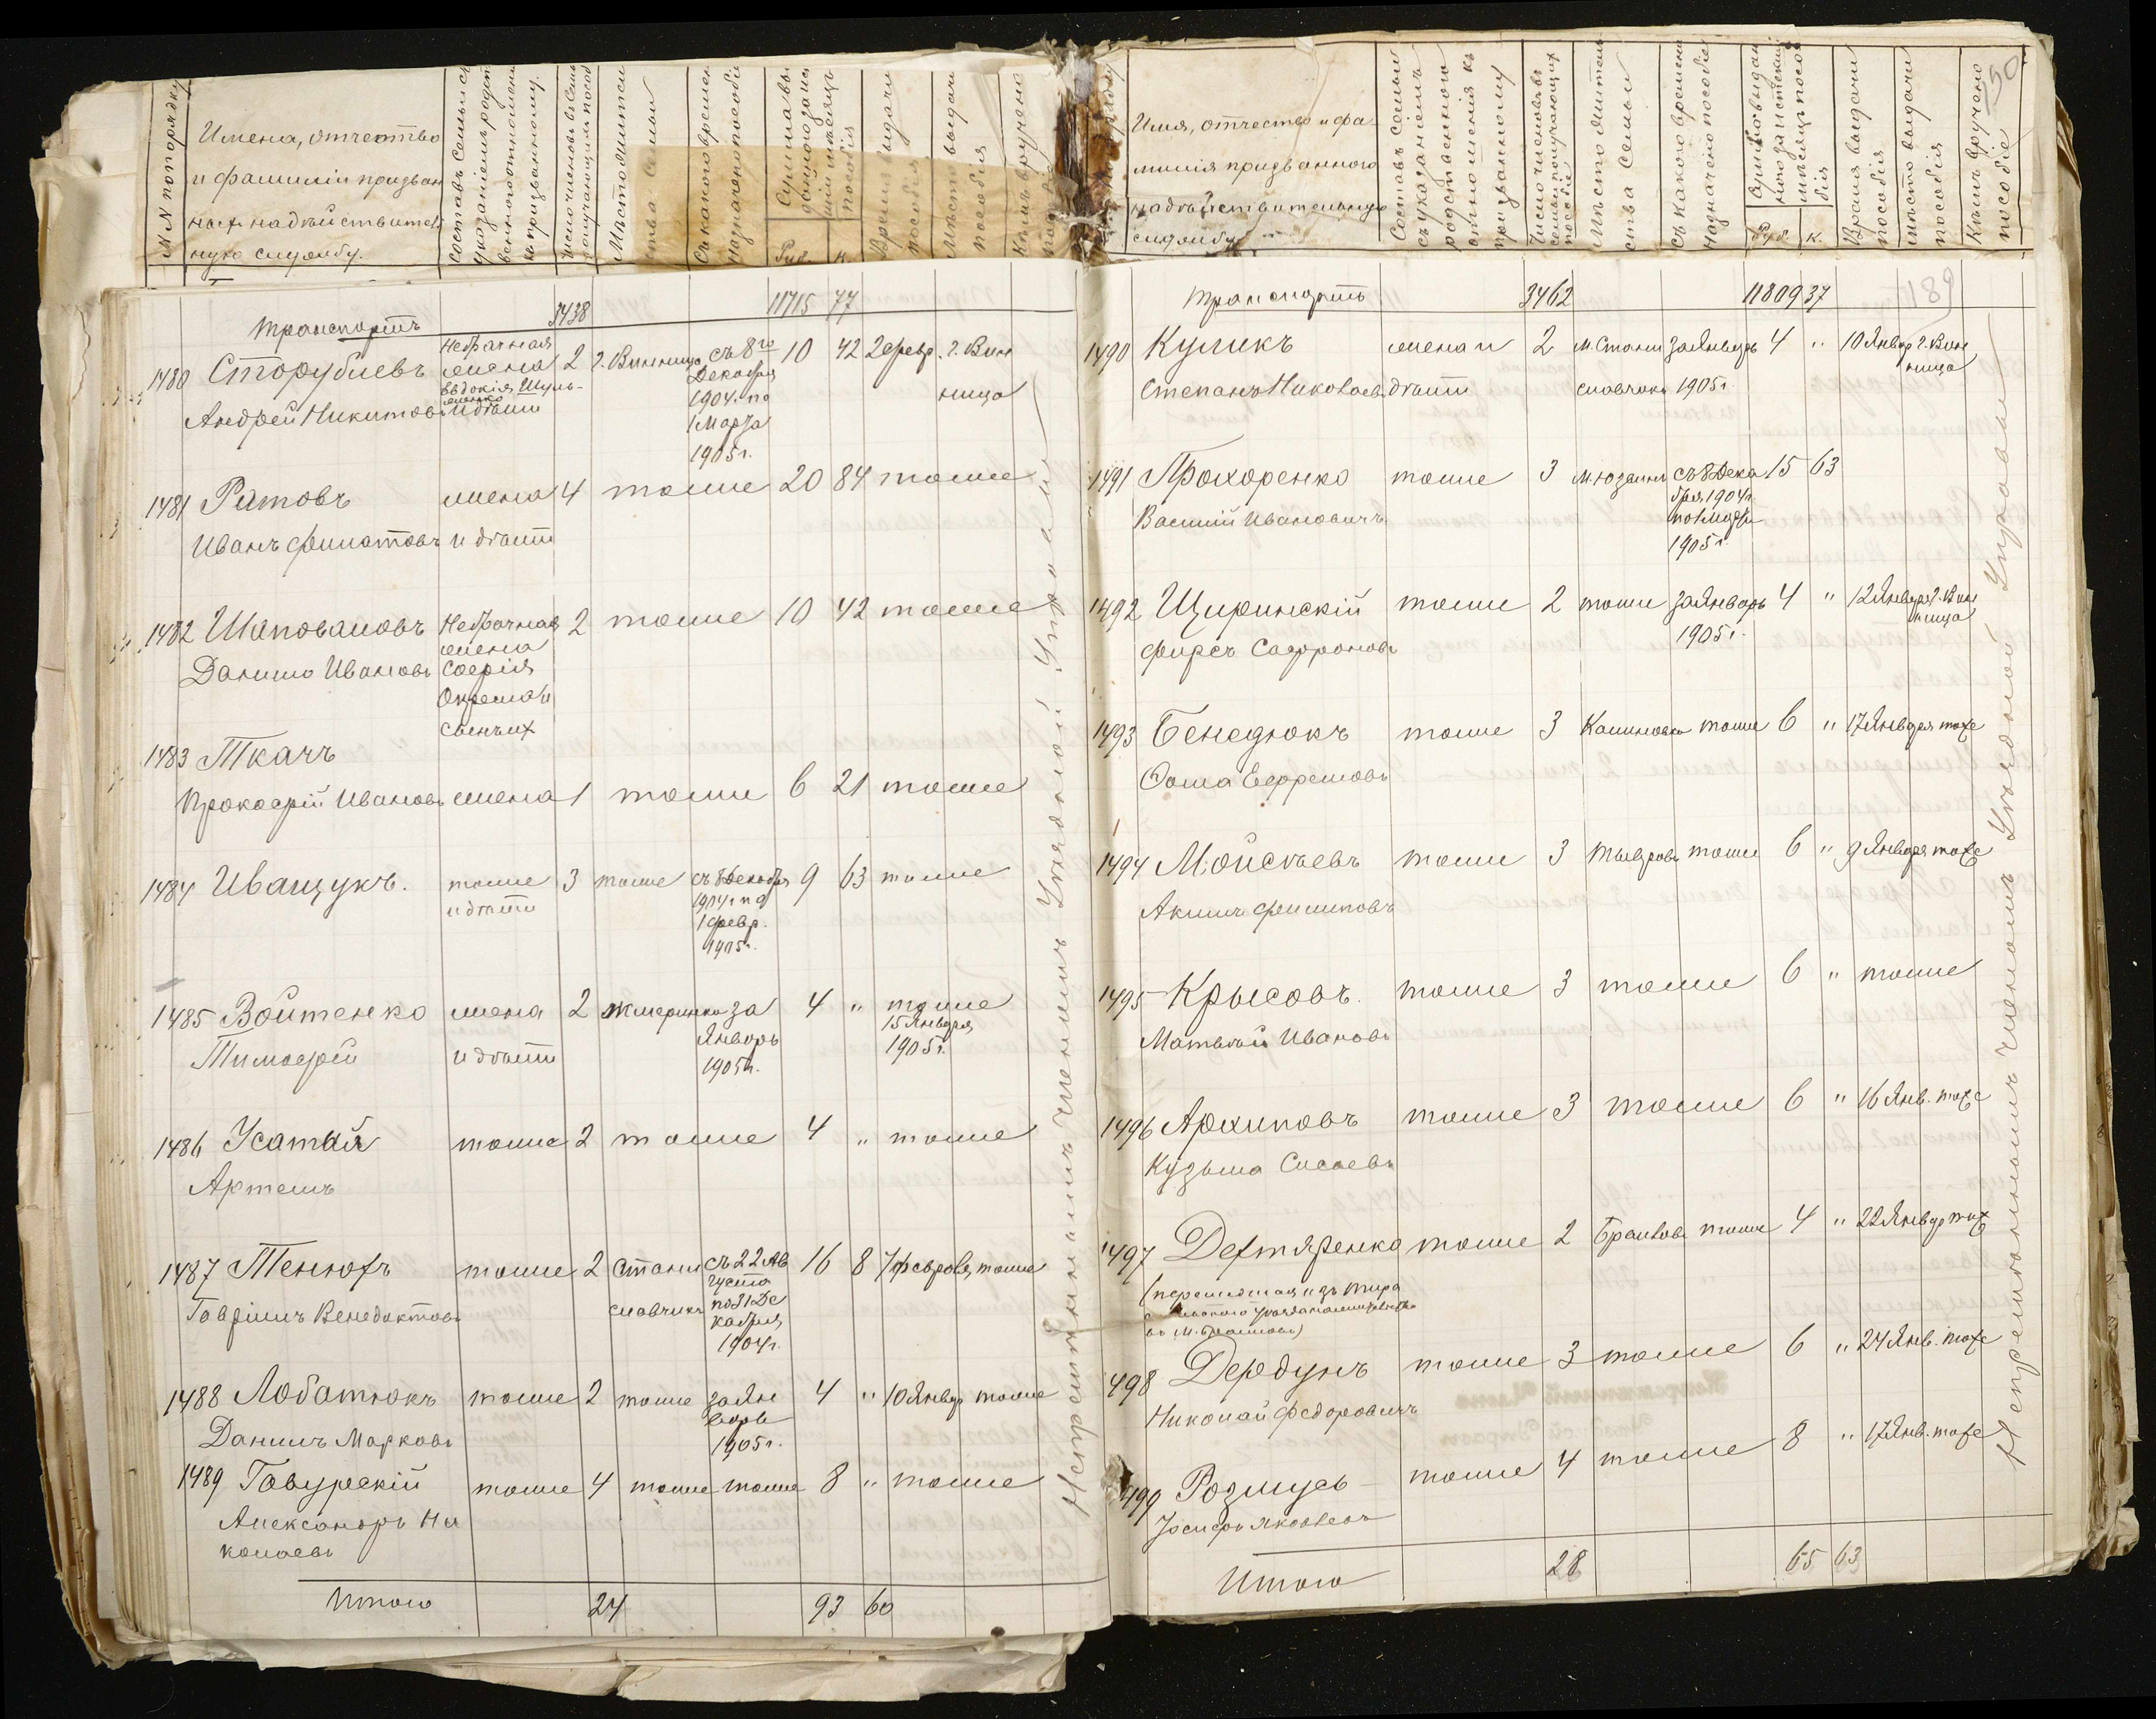 №№ по порядку
Имена, отчество и фамиліи призван ных на дѣйствитель ную службу.
Составъ семьи съ указаніемъ родст веннаго отношенія къ призванному.
Число членовъ семьи получающихъ пособ
Мѣсто жительства семьи
Съ какого времени назначено пособіе
Руб. к.
Время выдачи пособія
Мѣсто выдачи пособія
Кѣмъ вручено пособіе
Транспортъ 3438 11715 77
1480 Сторубцевъ Небрачная жена 2 г. Винница съ 8го 10 42 2 февр. г. Вин
Андрей Никитовъ Евдокія Шуль- и дѣти Декабря 1904 г. по 1 Марта 1905 г. ница
1481 Ратовъ жена 4 тоже 20 84 тоже
Иванъ Филатовъ и дѣти
1482 Шаповаловъ Небрачная жена 2 тоже 10 42 тоже
Данило Ивановъ Софія
1483 Ткачъ
Прокофій Ивановъ жена 1 тоже 6 21 тоже
1484 Иващукъ. тоже 3 тоже съ 8 Декабря 9 63 тоже
и дѣти 1904 г. по 1 февр. 1905 г.
1485 Войтенко жена 2 Жмеринка за 4 " тоже
Тимофей и дѣти Январь 1905 г. 15 Января 1905 г.
1486 Усатый тоже 2 тоже 4 " тоже
Артемъ
1487 Тенюхъ тоже 2 Стани съ 22 Ав 16 8 7 февраля тоже
Гавріилъ Венедиктовъ славчикъ густа по 31 Де кабря 1904 г.
1488 Лобатюкъ тоже 2 тоже за Ян 4 " 10 Январ тоже
Даніилъ Марковъ варь 1905 г.
1489 Гавурскій тоже 4 тоже тоже 8 " тоже
Александръ Ни
колаевъ
Итого 24 93 60
Непремѣннымъ членомъ Уѣздной Управы
Имя, отчество и фа
милія призваннаго
на дѣйствительную
службу
Составъ семьи съ указаніемъ родственнаго отношенія къ призванному
Число членовъ семьи получающихъ пособіе
Мѣсто житель ства семьи
Съ какого времени назначено пособіе
Руб. к.
Время выдачи пособія
Мѣсто выдачи пособія
Кѣмъ вручено пособіе
50
189
Транспортъ 3462 11809 37
1490 Куликъ жена и 2 М. Стани за Январь 4 " 10 Январ г. Вин
Степанъ Николаевъ дѣти славчикъ 1905 г. ница
1491 Прохоренко тоже 3 съ 8 Дека 15 63
Василій Ивановичъ бря 1904 г. по 1 Марта 1905 г.
1492 Щиринскій тоже 2 тоже за Январь 4 " 12 Января г. Вин
Фирсъ Сафроновъ 1905 г. ница
1493 Бенедюкъ тоже 3 Калиновка тоже 6 " 17 Января тоже
Фома Ефремовъ
1494 Мойсѣевъ тоже 3 Тывровъ тоже 6 " 9 Января тоже
Акимъ Филиповъ
1495 Крысовъ. тоже 3 тоже 6 " тоже
Матвѣй Ивановъ
1496 Архиповъ тоже 3 тоже 6 " 16 Янв. тоже
Кузьма Сысоевъ
1497 Дехтяренко тоже 2 Браиловъ тоже 4 " 22 Январ тоже
въ М. Браиловъ)
1498 Дердунъ тоже 3 тоже 6 " 24 Янв. тоже
Николай Федоровичъ
1499 Розмусъ тоже 4 тоже 8 " 17 Янв. тоже
Іосифъ Яковлевъ
Итого 28 65 63
Непремѣннымъ членомъ Уѣздной Управы